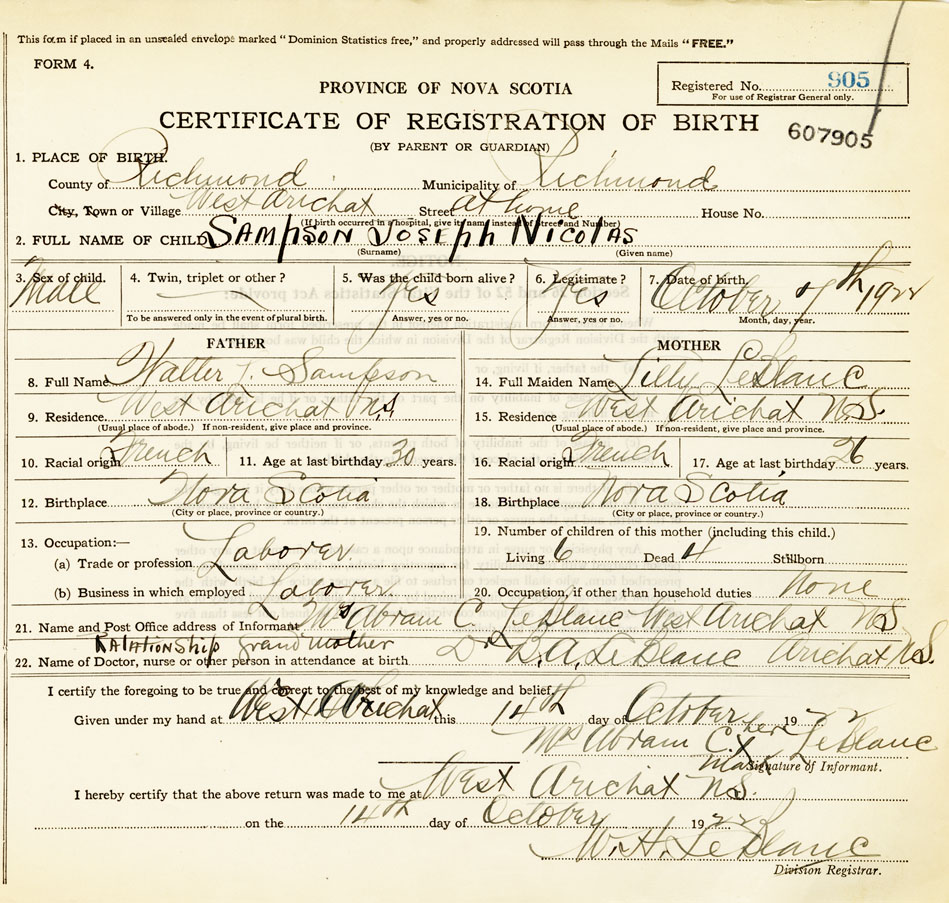 This form if placed in an unsealed envelope marked "Dominion Statistics free," and properly addressed will pass through the Mails "FREE."
FORM 4.
Registered No. 905
For use of Registrar General only.
PROVINCE OF NOVA SCOTIA
CERTIFICATE OF REGISTRATION OF BIRTH
607905
(BY PARENT OR GUARDIAN)
1. PLACE OF BIRTH.
County of Richmond Municipality of Richmond
City, Town or Village West Arichat Street At home House No.
(If birth occurred in a hospital, give its name instead of Street and Number)
2. FULL NAME OF CHILD SAMPSON JOSEPh NICOLAS
(Surname) (Given name)
3. Sex of child. 4. Twin, triplet or other? 5. Was the child born alive? 6. Legitimate? 7. Date of birth.
Male Yes Yes October 7th 1922
To be answered only in the event of plural birth. Answer, yes or no. Answer, yes or no. Month, day, year.
FATHER MOTHER
8. Full Name Walter J. Sampson 14. Full Maiden Name Lilly LeBlanc
9. Residence West Arichat N.S. 15. Residence West Arichat N.S.
(Usual place of abode.) If non-resident, give place and province. (Usual place of abode.) If non-resident, give place and province.
10. Racial origin French 11. Age at last birthday 30 years. 16. Racial origin French 17. Age at last birthday 26 years.
12. Birthplace Nova Scotia 18. Birthplace Nova Scotia
(City or place, province or country.) (City or place, province or country.)
13. Occupation:— 19. Number of children of this mother (including this child.)
(a) Trade or profession Laborer Living 6 Dead 4 Stillborn
(b) Business in which employed Laborer 20. Occupation, if other than household duties None
21. Name and Post Office address of Informant Mrs Abram C. LeBlanc West Arichat N.S
RALATIONSHIP grand mother
22. Name of Doctor, nurse or other person in attendance at birth Dr B.A. LeBlanc Arichat N.S.
I certify the foregoing to be true and correct to the best of my knowledge and belief.
Given under my hand at West Arichat this 14th day of October 1922
Mrs Abram C. her X LeBlanc
mark Signature of Informant.
I hereby certify that the above return was made to me at West Arichat N.S.
on the 14th day of October 1922
W.H. LeBlanc
Division Registrar.